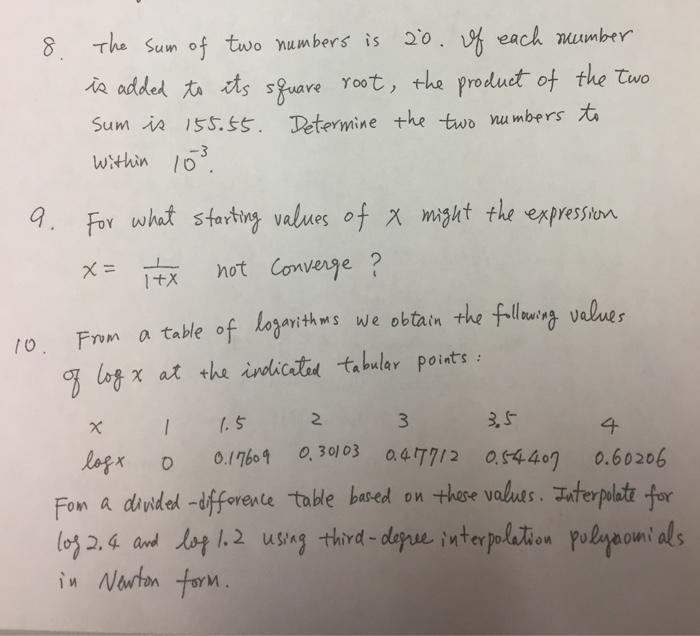 8. The sum of two numbers is 20. If each number
is added to its square root, the product of the two
sum is 155.55. Determine the two numbers to
within 10⁻³.
9. For what starting values of x might the expression
x = 1/(1+x) not converge?
10. From a table of logarithms we obtain the following values
of log x at the indicated tabular points:
x 1 1.5 2 3 3.5 4
log x 0 0.17609 0.30103 0.47712 0.54407 0.60206
Fom a divided-difference table based on these values. Interpolate for
log 2.4 and log 1.2 using third-degree interpolation polynomials
in Newton form.